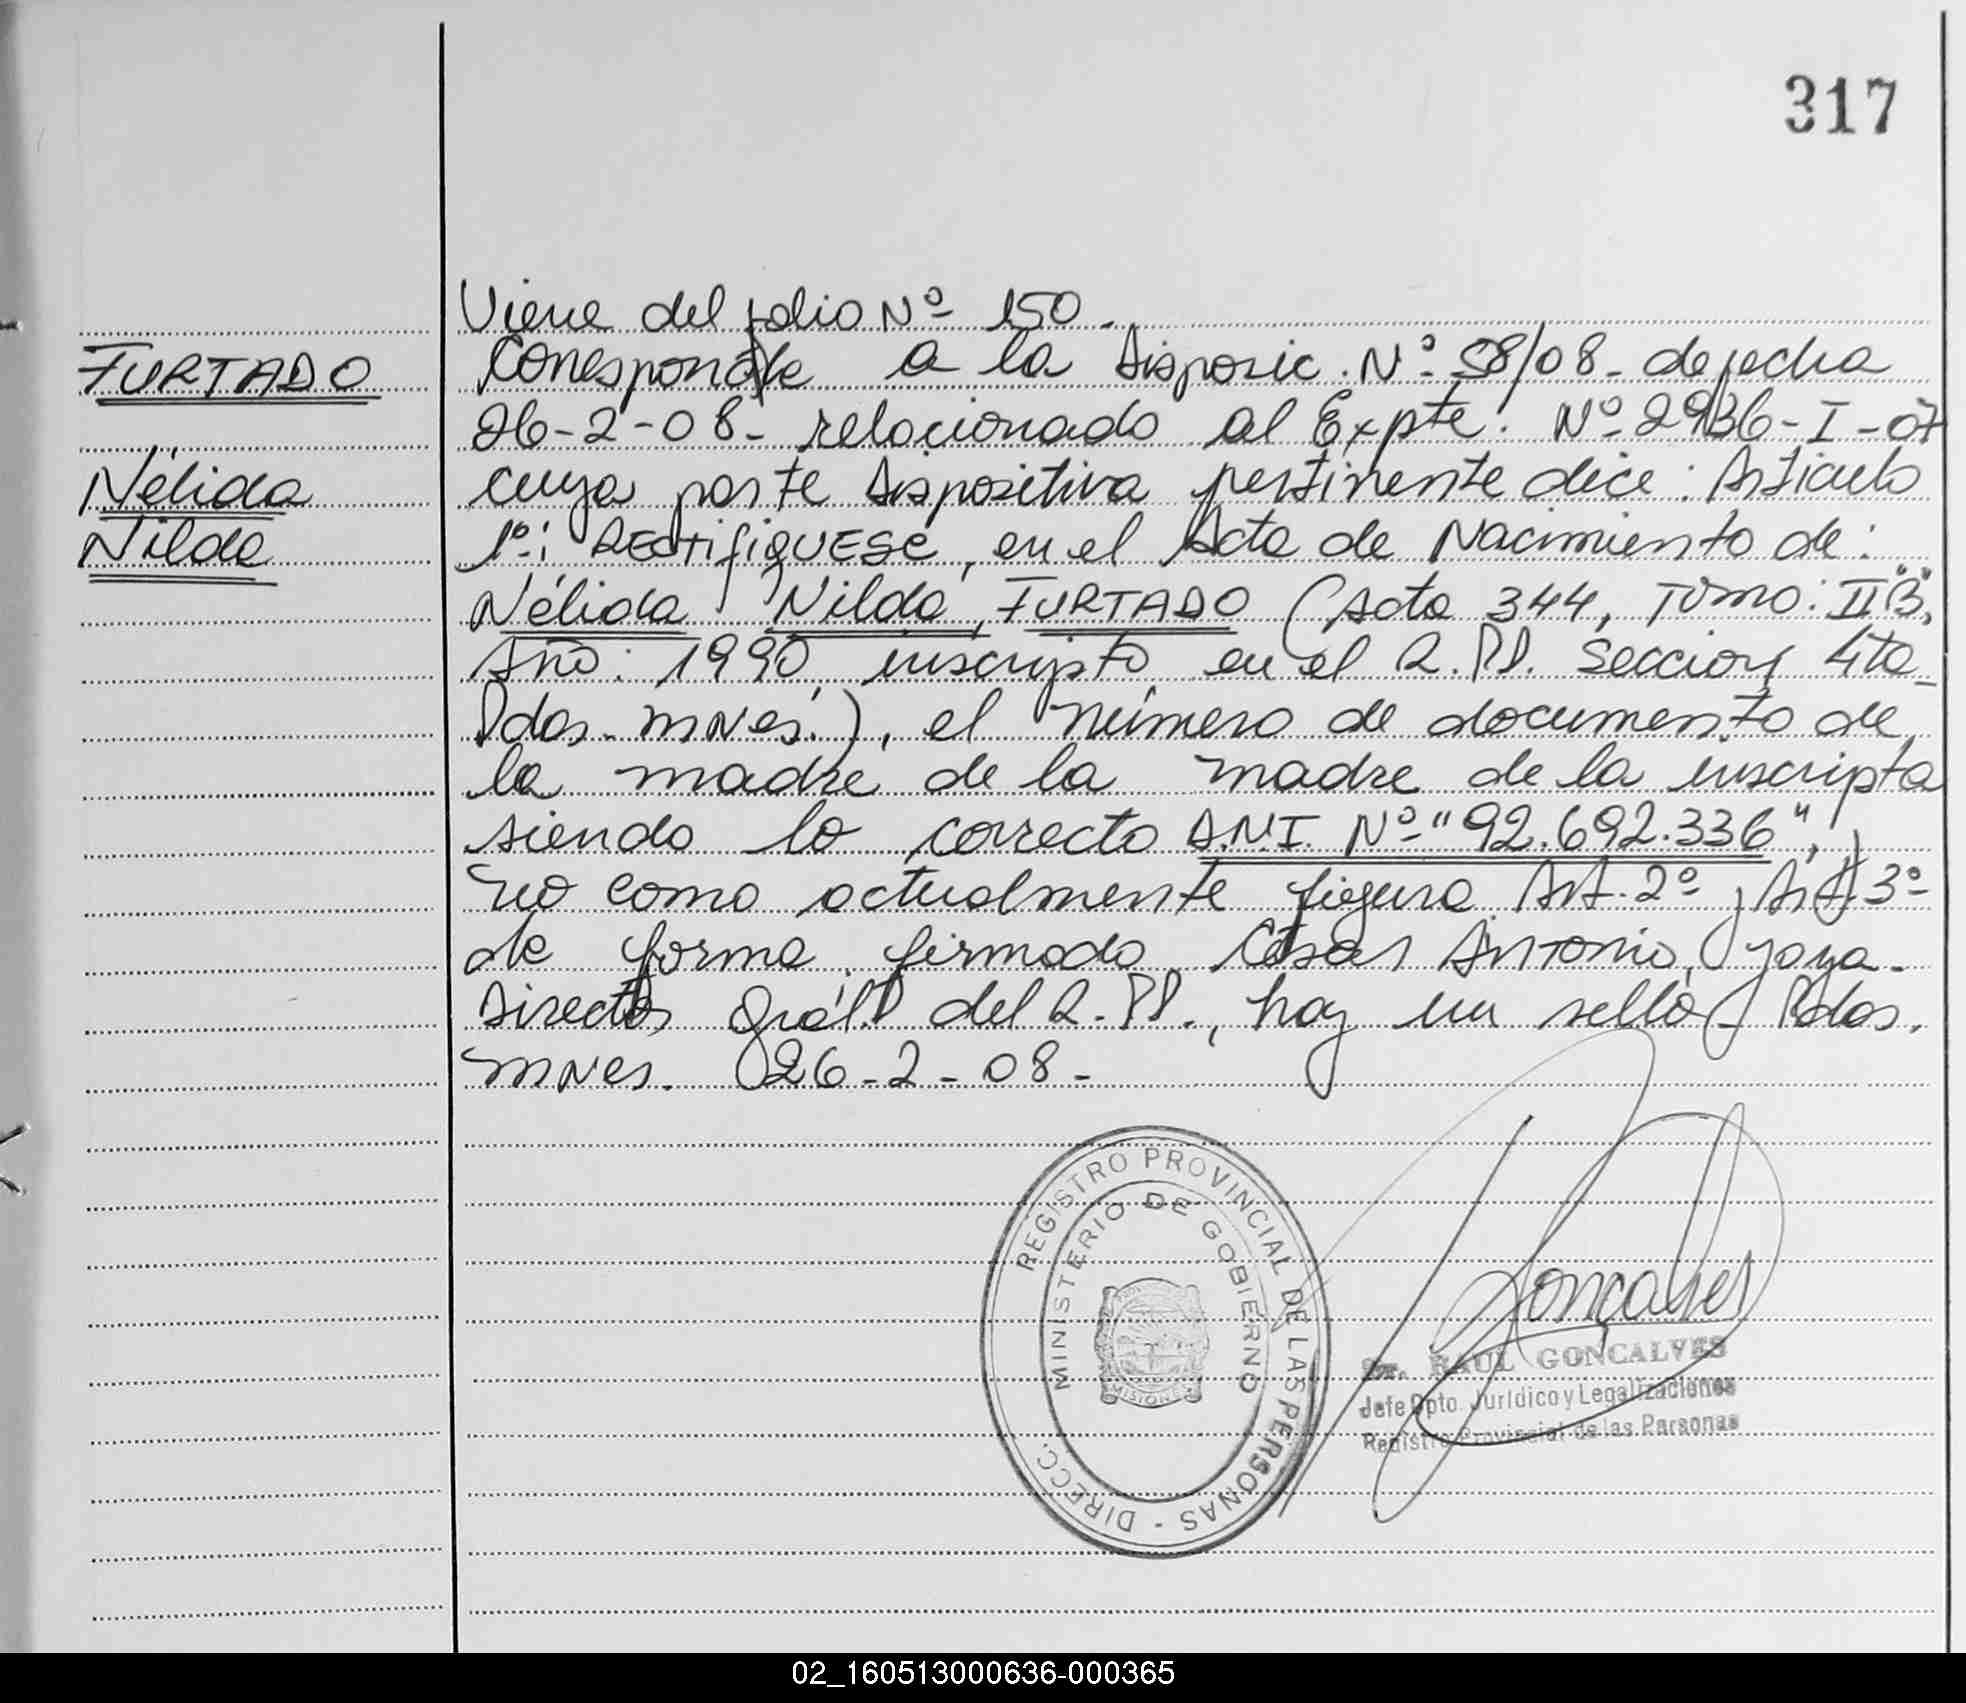 317
Viene del folio Nº 150.
FURTADO
Corresponde a la Disposic. Nº 58/08. de fecha
26-2-08. relacionado al Expte. Nº 2936-I-07
Nélida
cuya parte dispositiva pertinente dice: Articulo
Nilda
1º: RECTIFIQUESE, en el Acta de Nacimiento de:
Nélida Nilda, FURTADO (Acta 344, Tomo: II "B",
Año: 1990, inscripto en el R.PP. Seccion 4ta
Pdas. Mnes.), el número de documento de
la madre de la madre de la inscripta
siendo lo correcto D.N.I. Nº "92.692.336",
no como actualmente figura. Art. 2º y Art. 3º
de forma, firmado, César Antonio, Joya.
Director Gral. del R.PP., hay un sello. Pdas.
Mnes. 26-2-08.
REGISTRO PROVINCIAL DE LAS PERSONAS - DIRECC.
MINISTERIO DE GOBIERNO
MISIONES
Goncalves
Sr. RAUL GONCALVES
Jefe Dpto. Jurídico y Legalizaciones
Registro Provincial de las Personas
02_160513000636-000365